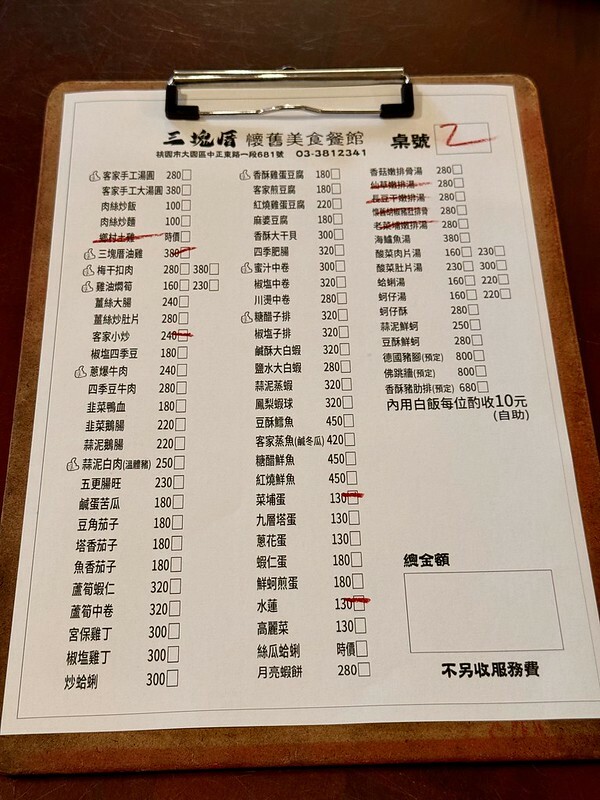 三塊厝 懷舊美食餐館
桃園市大園區中正東路一段681號 03-3812341
桌號 2
客家手工湯圓 280
客家手工大湯圓 380
肉絲炒飯 100
肉絲炒麵 100
鄉村土雞 時價
三塊厝油雞 380
梅干扣肉 280 380
雞油燜筍 160 230
薑絲大腸 240
薑絲炒肚片 280
客家小炒 240
椒塩四季豆 180
蔥爆牛肉 240
四季豆牛肉 280
韭菜鴨血 180
韭菜鵝腸 220
蒜泥鵝腸 220
蒜泥白肉(溫體豬) 250
五更腸旺 230
鹹蛋苦瓜 180
豆角茄子 180
塔香茄子 180
魚香茄子 180
蘆筍蝦仁 320
蘆筍中卷 320
宮保雞丁 300
椒塩雞丁 300
炒蛤蜊 300
香酥雞蛋豆腐 180
客家煎豆腐 180
紅燒雞蛋豆腐 220
麻婆豆腐 180
香酥大干貝 300
四季肥腸 320
蜜汁中卷 300
椒塩中卷 320
川燙中卷 280
糖醋子排 320
椒塩子排 320
鹹酥大白蝦 320
鹽水大白蝦 280
蒜泥蒸蝦 320
鳳梨蝦球 320
豆酥鱈魚 450
客家蒸魚(鹹冬瓜) 420
糖醋鮮魚 450
紅燒鮮魚 450
菜埔蛋 130
九層塔蛋 130
蔥花蛋 130
蝦仁蛋 180
鮮蚵煎蛋 180
水蓮 130
高麗菜 130
絲瓜蛤蜊 時價
月亮蝦餅 280
香菇嫩排骨湯 280
仙草嫩排湯 280
長豆干嫩排湯 280
懷舊胡椒豬肚排骨 280
老菜埔嫩排湯 280
海鱸魚湯 380
酸菜肉片湯 160 230
酸菜肚片湯 230 300
蛤蜊湯 160 220
蚵仔湯 160 220
蚵仔酥 280
蒜泥鮮蚵 250
豆酥鮮蚵 280
德國豬腳(預定) 800
佛跳牆(預定) 800
香酥豬肋排(預定) 680
內用白飯每位酌收10元
(自助)
總金額
不另收服務費